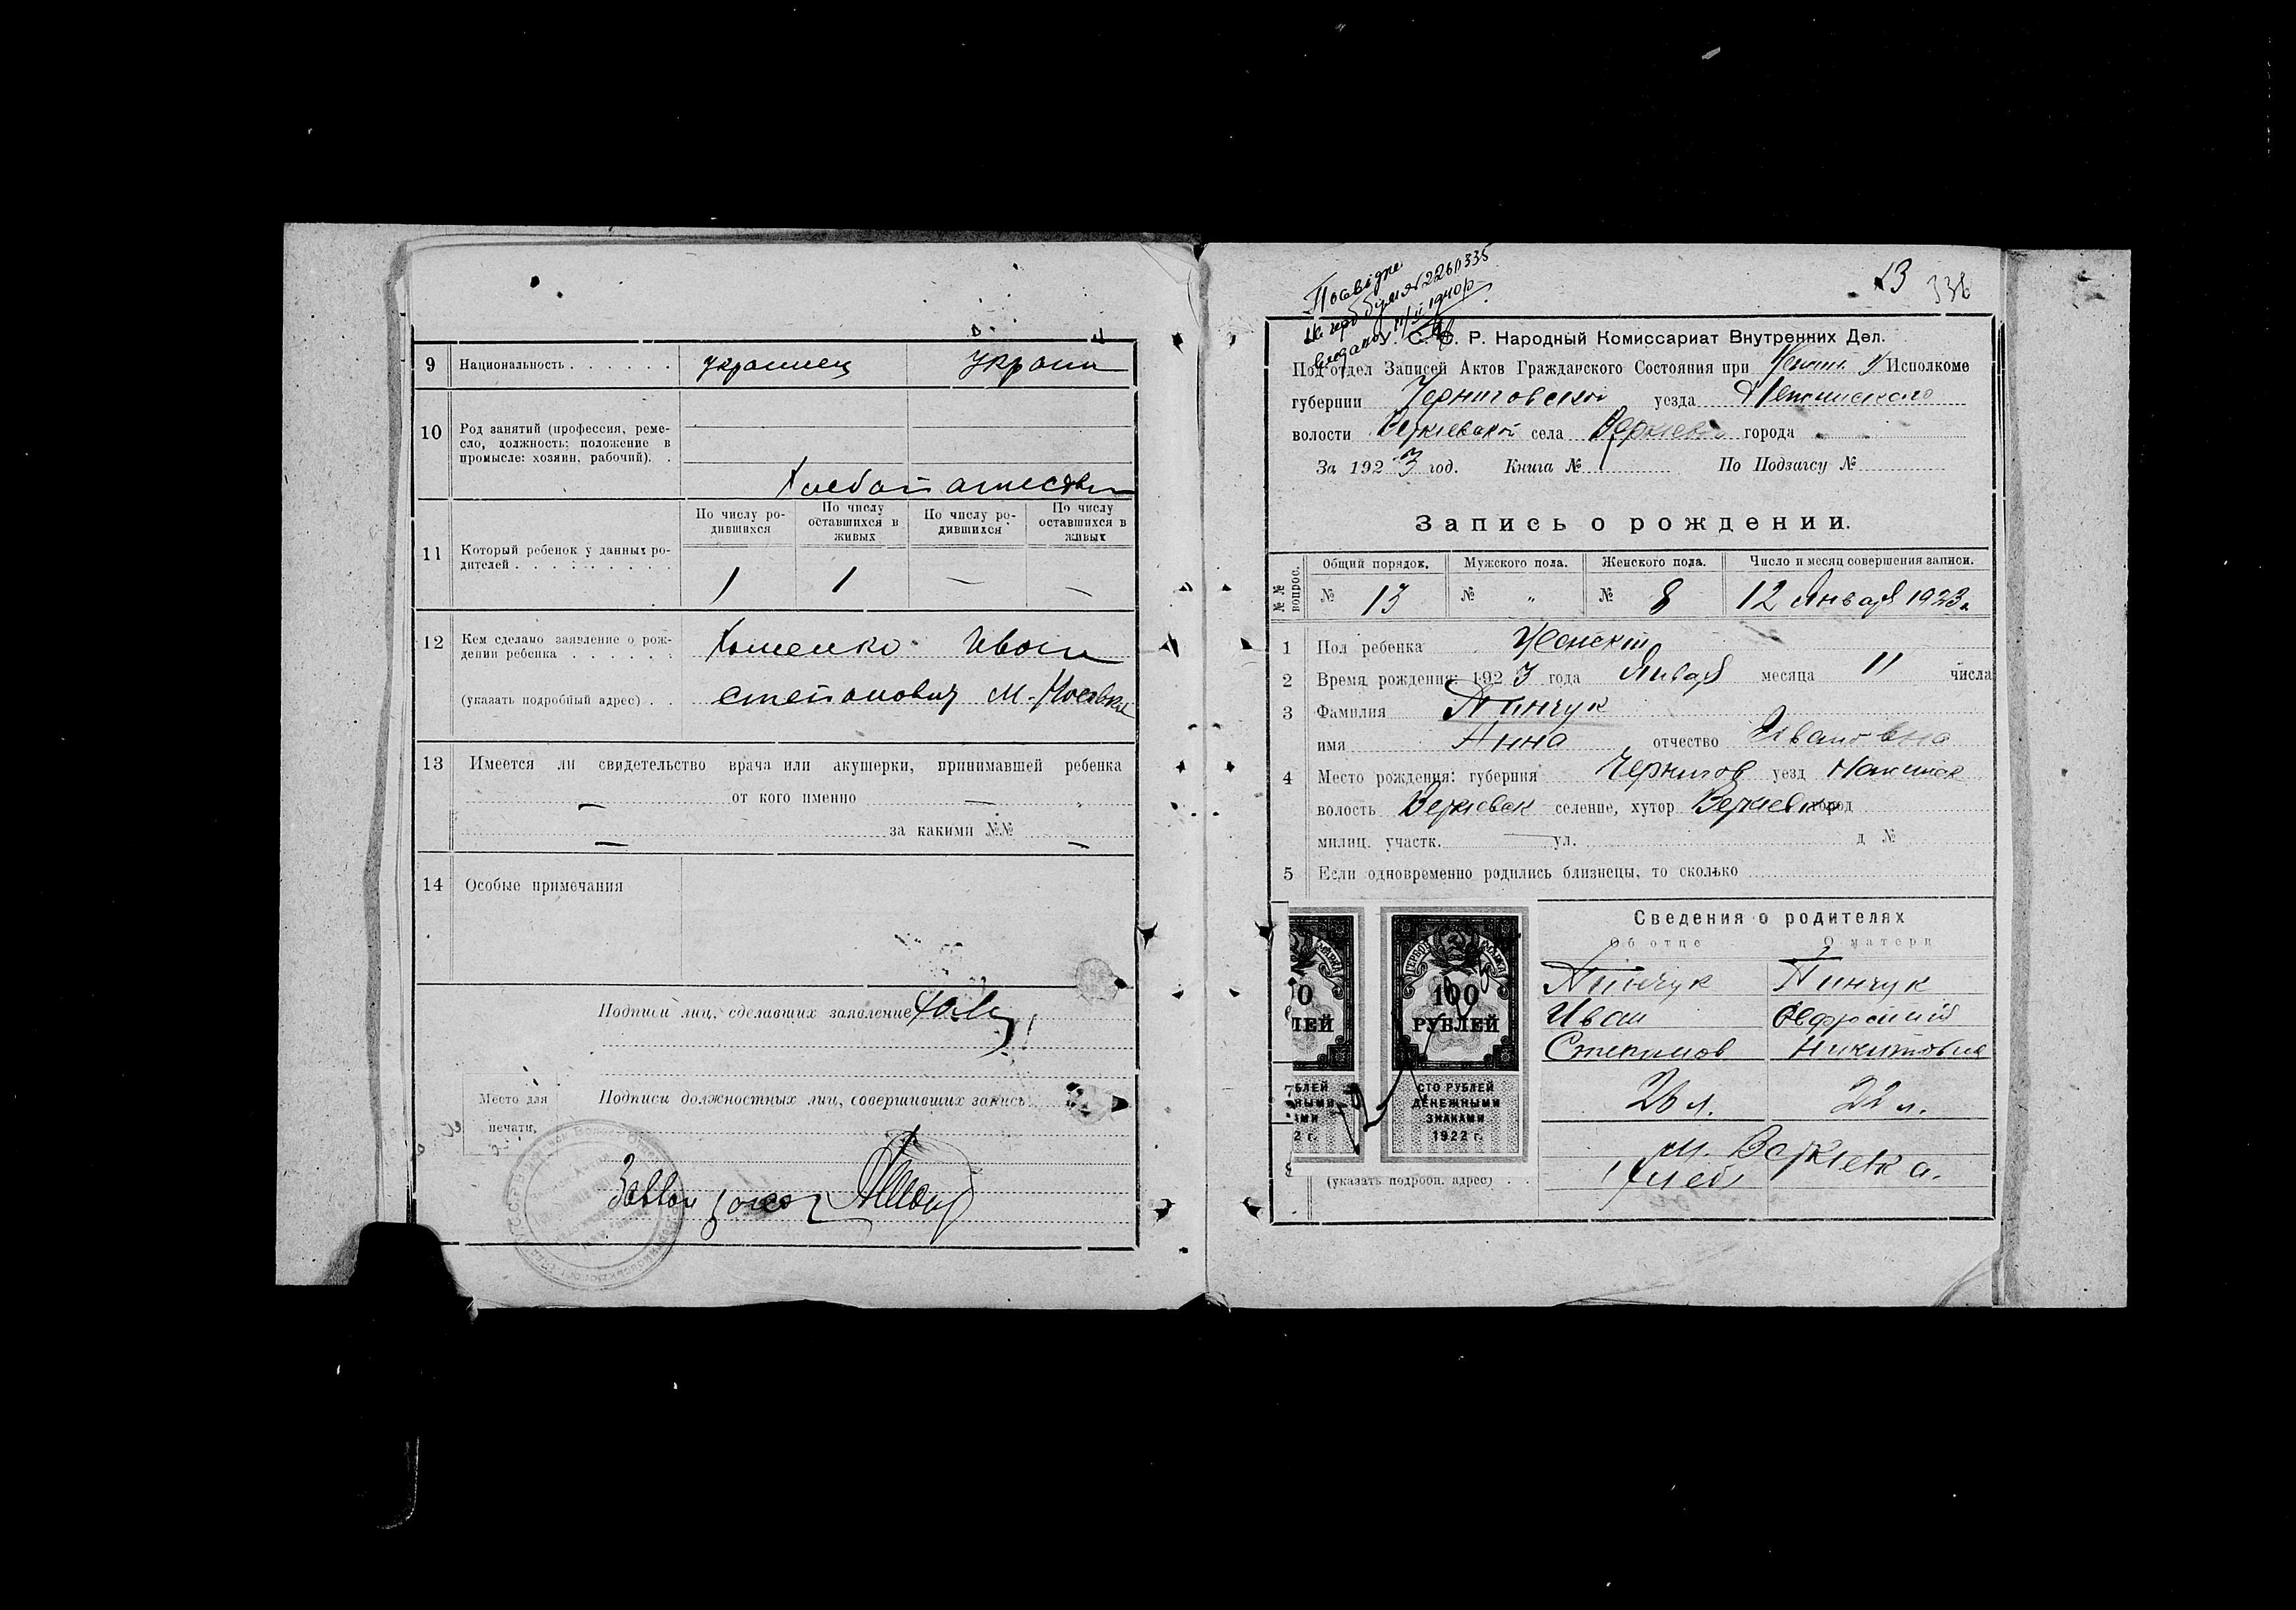 9 Национальность . . . . . . украинец украин
10 Род занятий (профессия, реме-
сло, должность; положение в
промысле: хозяин, рабочий). .
Хлебопашество
11 Который ребенок у данных ро-
дителей . . . . . . . . .
По числу ро-
дившихся
По числу
оставшихся в
живых
По числу ро-
дившихся
По числу
оставшихся в
живых
1 1 — —
12 Кем сделано заявление о рож-
дении ребенка . . . . . . Хоменко Иван
(указать подробный адрес) . . Степанович м. Носовка
13 Имеется ли свидетельство врача или акушерки, принимавшей ребенка
— от кого именно —
— за какими №№ —
14 Особые примечания
Подписи лиц, сделавших заявление
Место для
печати.
Подписи должностных лиц, совершивших запись
13 336
Посвідче
У. С. С. Р. Народный Комиссариат Внутренних Дел.
Под'отдел Записей Актов Гражданского Состояния при Исполкоме
губернии Черниговской уезда Нежинского
волости Веркиевской села Веркиевка города
За 1923 год. Книга № По Подзагсу №
Запись о рождении.
№№ вопрос.
Общий порядок. Мужского пола. Женского пола. Число и месяц совершения записи.
№ 13 № „ № 8 12 Января 1923 г.
1 Пол ребенка Женский
2 Время рождения: 1923 года Января месяца 11 числа
3 Фамилия Пинчук
имя Анна отчество Ивановна
4 Место рождения: губерния Чернигов уезд Нежинск
волость Веркиевск селение, хутор Веркиевка город
милиц. участк. — ул. д №
5 Если одновременно родились близнецы, то сколько
Сведения о родителях
Об отце О матери
Пинчук Пинчук
Иван Ефросиния
Степанов Никитовна
26 л. 22 л.
м. Веркиевка.
(указать подробн. адрес) . .
ГЕРБОВАЯ МАРКА
100
РУБЛЕЙ
СТО РУБЛЕЙ
ДЕНЕЖНЫМИ
ЗНАКАМИ
1922 г.